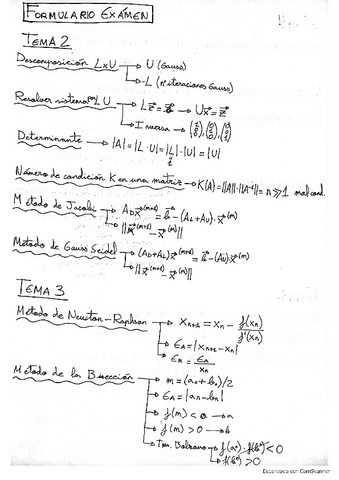 FORMULARIO EXÁMEN
TEMA 2
Descomposición LxU → U (Gauss)
→ L (nº iteraciones Gauss)
Resolver sistema LU → Lz⃗ = b⃗ → Ux⃗ = z⃗
→ Inversa → (1 0 0), (0 1 0), (0 0 1)
Determinante → |A| = |L·U| = |L|·|U| = |U|
1
Número de condición K en una matriz → K(A) = ||A||·||A⁻¹|| = n >> 1 mal cond.
Método de Jacobi → A_D x⃗^(m+1) = b⃗ - (A_L + A_U)·x⃗^(m)
→ ||x⃗^(m+1) - x⃗^(m)||
Método de Gauss Seidel → (A_D + A_L)x⃗^(m+1) = b⃗ - (A_U)·x⃗^(m)
→ ||x⃗^(m+1) - x⃗^(m)||
TEMA 3
Método de Newton-Raphson → x_{n+1} = x_n - f(x_n)/f'(x_n)
→ ε_A = |x_{n+1} - x_n|
→ ε_R = ε_A/x_n
Método de la Bisección → m = (a_0 + b_0)/2
→ ε_A = |a_n - b_n|
→ f(m) < 0 → a
→ f(m) > 0 → b
→ Tma. Bolzano → f(a⁰)·f(b⁰) < 0
→ f(b⁰) > 0
Escaneado con CamScanner